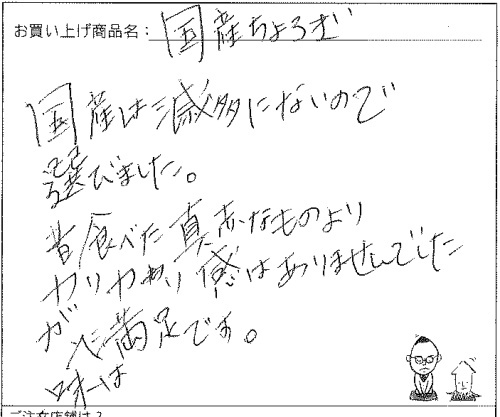 お買い上げ商品名： 国産ちょろぎ
国産は滅多にないので
選びました。
昔食べた真赤なものより
カリカリ感はありませんでした
が
味は大満足です。
ご注文店舗は？